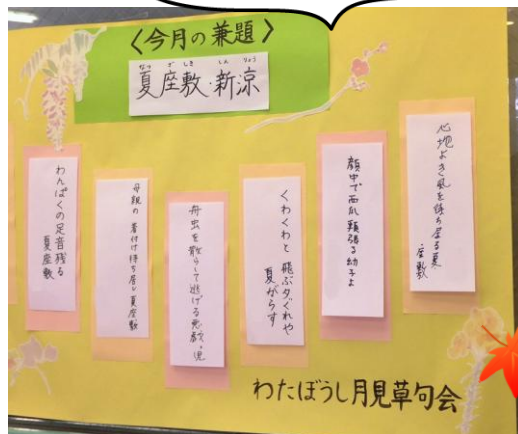 〈今月の兼題〉
なつざしき しんりょう
夏座敷・新涼
心地よき風を待ち居る夏
座敷
顔中で西瓜頬張る幼子よ
くわくわと飛ぶ夕ぐれや
夏がらす
舟虫を散らして逃げる悪戯っ児
母親の着付け待ち居し夏座敷
わんぱくの足音残る
夏座敷
わたぼうし月見草句会